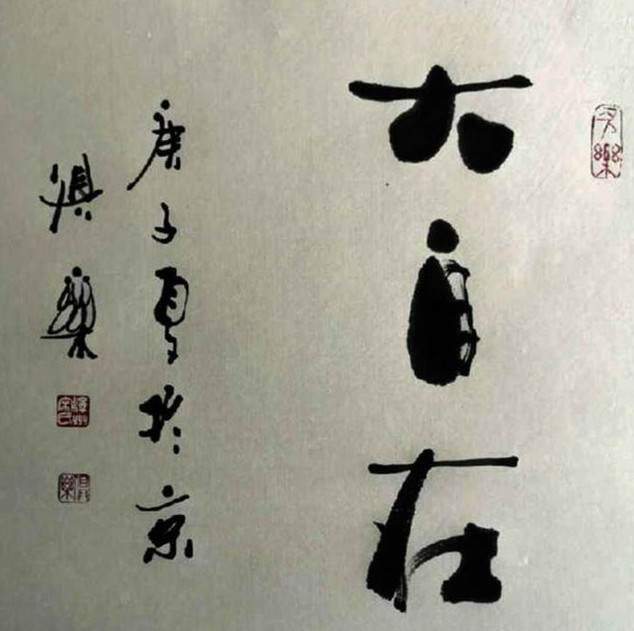 大自在
庚子夏於京
俱樂